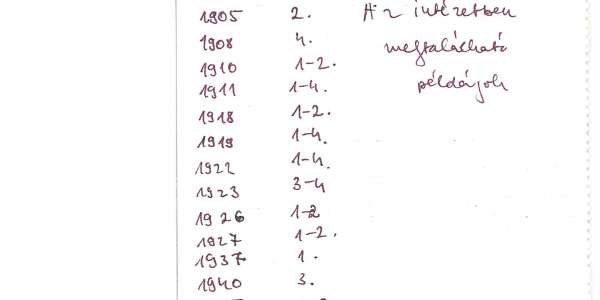 1905 2. Az intézetben
1908 4. megtalálható
1910 1-2. példányok
1911 1-4.
1918 1-2.
1919 1-4.
1922 1-4.
1923 3-4
1926 1-2
1927 1-2.
1937 1.
1940 3.